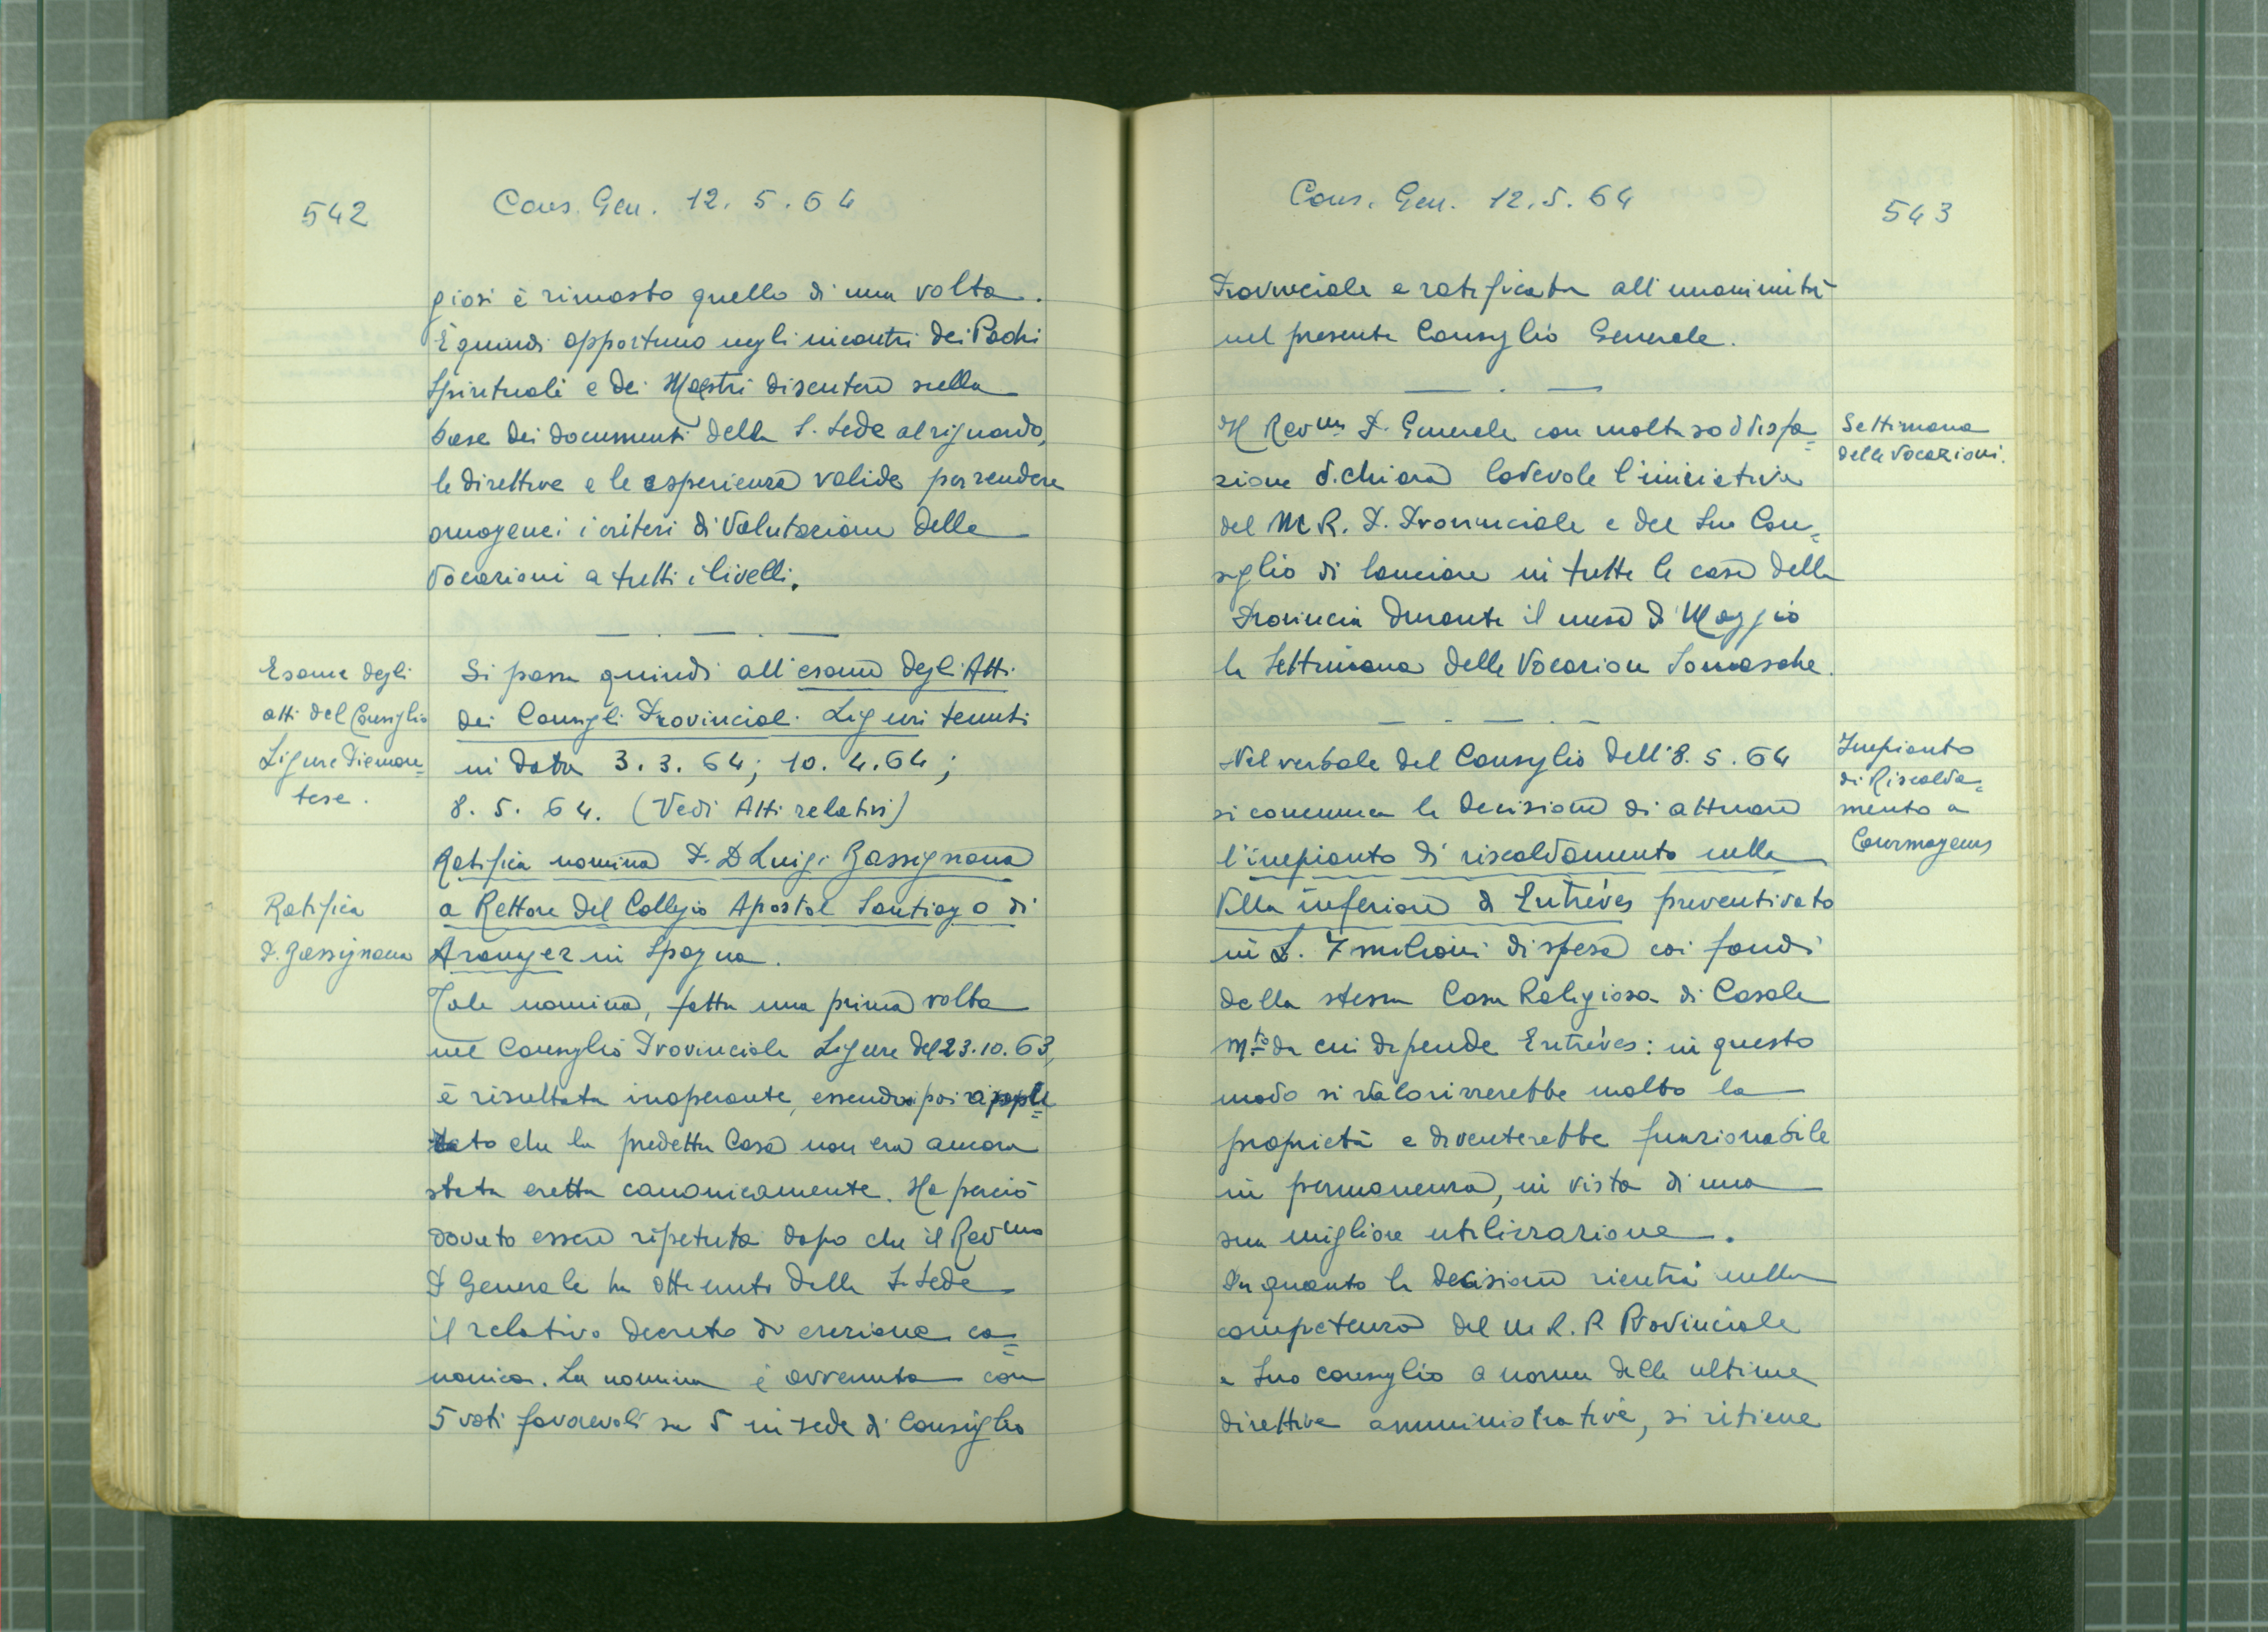 542
Cons. Gen. 12. 5. 64
giosi è rimasto quello di una volta.
È quindi opportuno negli incontri dei Padri
Spirituali e dei Maestri discutere sulla
base dei documenti della S. Sede al riguardo,
le direttive e le esperienze valide per rendere
omogenei i criteri di valutazione delle
vocazioni a tutti i livelli.
Esame degli
atti del Consiglio
Ligure Piemon=
tese.
Si passa quindi all'esame degli Atti
dei Consigli Provinciali Liguri tenuti
in data 3. 3. 64; 10. 4. 64;
8. 5. 64. (Vedi Atti relativi)
Ratifica
P. Bassignana
Ratifica nomina P. D Luigi Bassignana
a Rettore del Collegio Apostol Santiago di
Aranyez in Spagna.
Tale nomina, fatta una prima volta
nel Consiglio Provinciale Ligure del 23.10.63,
è risultata inoperante, essendo poi
che la predetta Casa non era ancora
stata eretta canonicamente. Ha perciò
dovuto essere ripetuta dopo che il Revmo
P Generale ha ottenuto dalla S. Sede
il relativo decreto di erezione ca=
nonica. La nomina è avvenuta con
5 voti favorevoli su 5 in sede di Consiglio
Cons. Gen. 12. 5. 64
543
Provinciale e ratificata all'unanimità
nel presente Consiglio Generale.
Settimana
delle Vocazioni.
Il Revmo P. Generale con molta soddisfa=
zione dichiara lodevole l'iniziativa
del M R. P. Provinciale e del Suo Con=
siglio di lanciare in tutte le case della
Provincia durante il mese di Maggio
la Settimana delle Vocazioni Somasche.
Impianto
di Riscalda=
mento a
Courmayeur
Nel verbale del Consiglio dell'8. 5. 64
si comunica la decisione di attuare
l'impianto di riscaldamento nella
Villa inferiore di Entrèves preventivato
in L. 7 milioni di spesa coi fondi
della stessa Casa Religiosa di Casale
Mto da cui dipende Entrèves: in questo
modo si valorizzerebbe molto la
proprietà e diventerebbe funzionabile
in permanenza, in vista di una
sua migliore utilizzazione.
In quanto la decisione rientra nella
competenza del M R. P Provinciale
e Suo consiglio a norma delle ultime
direttive amministrative, si ritiene